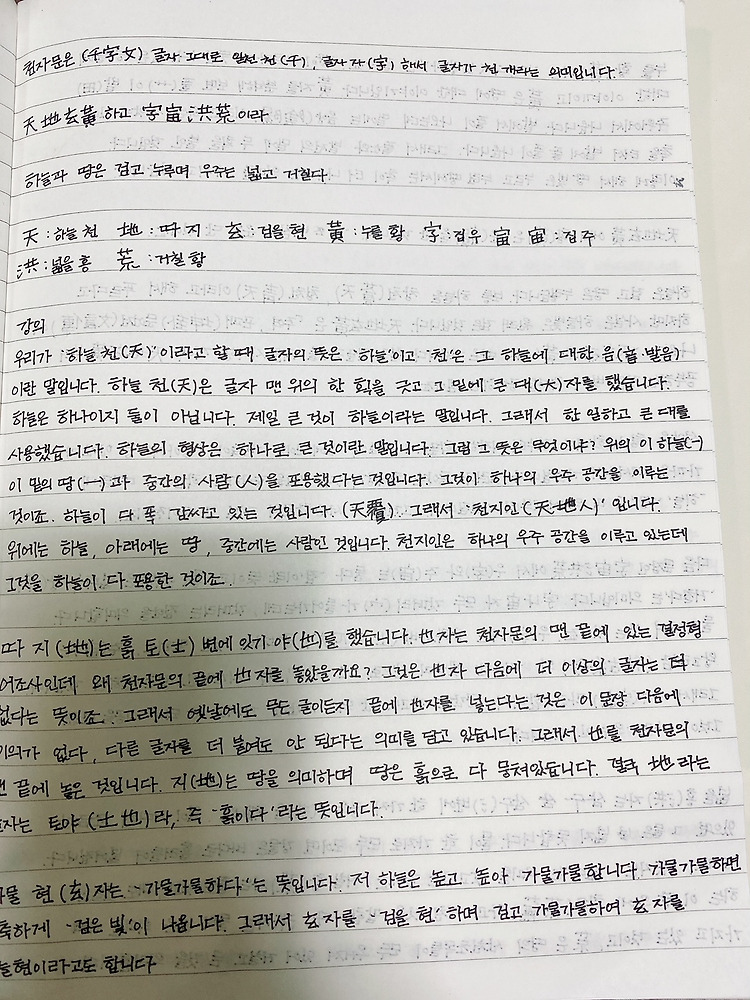 천자문은 (千字文) 글자 그대로 일천 천(千), 글자 자(字) 해서 글자가 천 개라는 의미입니다.
天地玄黃하고 宇宙洪荒이라
하늘과 땅은 검고 누루며 우주는 넓고 거칠다
天 : 하늘 천 地 : 따 지 玄 : 검을 현 黃 : 누를 황 宇 : 집 우 宙 宙 : 집 주
洪 : 넓을 홍 荒 : 거칠 황
강의
우리가 '하늘 천(天)'이라고 할 때 글자의 뜻은 '하늘'이고 '천'은 그 하늘에 대한 음(늘 발음)
이란 말입니다. 하늘 천(天)은 글자 맨 위의 한 획을 긋고 그 밑에 큰 대(大)자를 했습니다.
하늘은 하나이지 둘이 아닙니다. 제일 큰 것이 하늘이라는 말입니다. 그래서 한 일하고 큰 대를
사용했습니다. 하늘의 형상은 하나로 큰 것이란 말입니다. 그럼 그 뜻은 무엇이냐? 위의 이 하늘(一)
이 밑의 땅(一)과 중간의 사람(人)을 포용했다는 것입니다. 그것이 하나의 우주 공간을 이루는
것이죠. 하늘이 다 푹 감싸고 있는 것입니다. (天覆) 그래서 '천지인(天地人)'입니다.
위에는 하늘, 아래에는 땅, 중간에는 사람인 것입니다. 천지인은 하나의 우주 공간을 이루고 있는데
그것을 하늘이 다 포용한 것이죠.
따 지(地)는 흙 토(土) 변에 잇기 야(也)를 했습니다. 也자는 천자문의 맨 끝에 있는 결정형
어조사인데 왜 천자문의 끝에 也자를 놓았을까요? 그것은 也자 다음에 더 이상의 글자는 더
없다는 뜻이죠. 그래서 옛날에도 무든 글이든지 끝에 也자를 넣는다는 것은 이 문장 다음에
의가 없다, 다른 글자를 더 붙여도 안 된다는 의미를 담고 있습니다. 그래서 也를 천자문의
맨 끝에 놓은 것입니다. 지(地)는 땅을 의미하며 땅은 흙으로 다 뭉쳐있습니다. 결국 地라는
자는 토야(土也)라, 즉 '흙이다'라는 뜻입니다.
가물 현(玄)자는 '가물가물하다'는 뜻입니다. 저 하늘은 높고 높아 가물가물합니다 가물가물하면
하게 '검은 빛'이 나옵니다. 그래서 玄자를 '검을 현'하며 검고 가물가물하여 玄자를
현이라고도 합니다